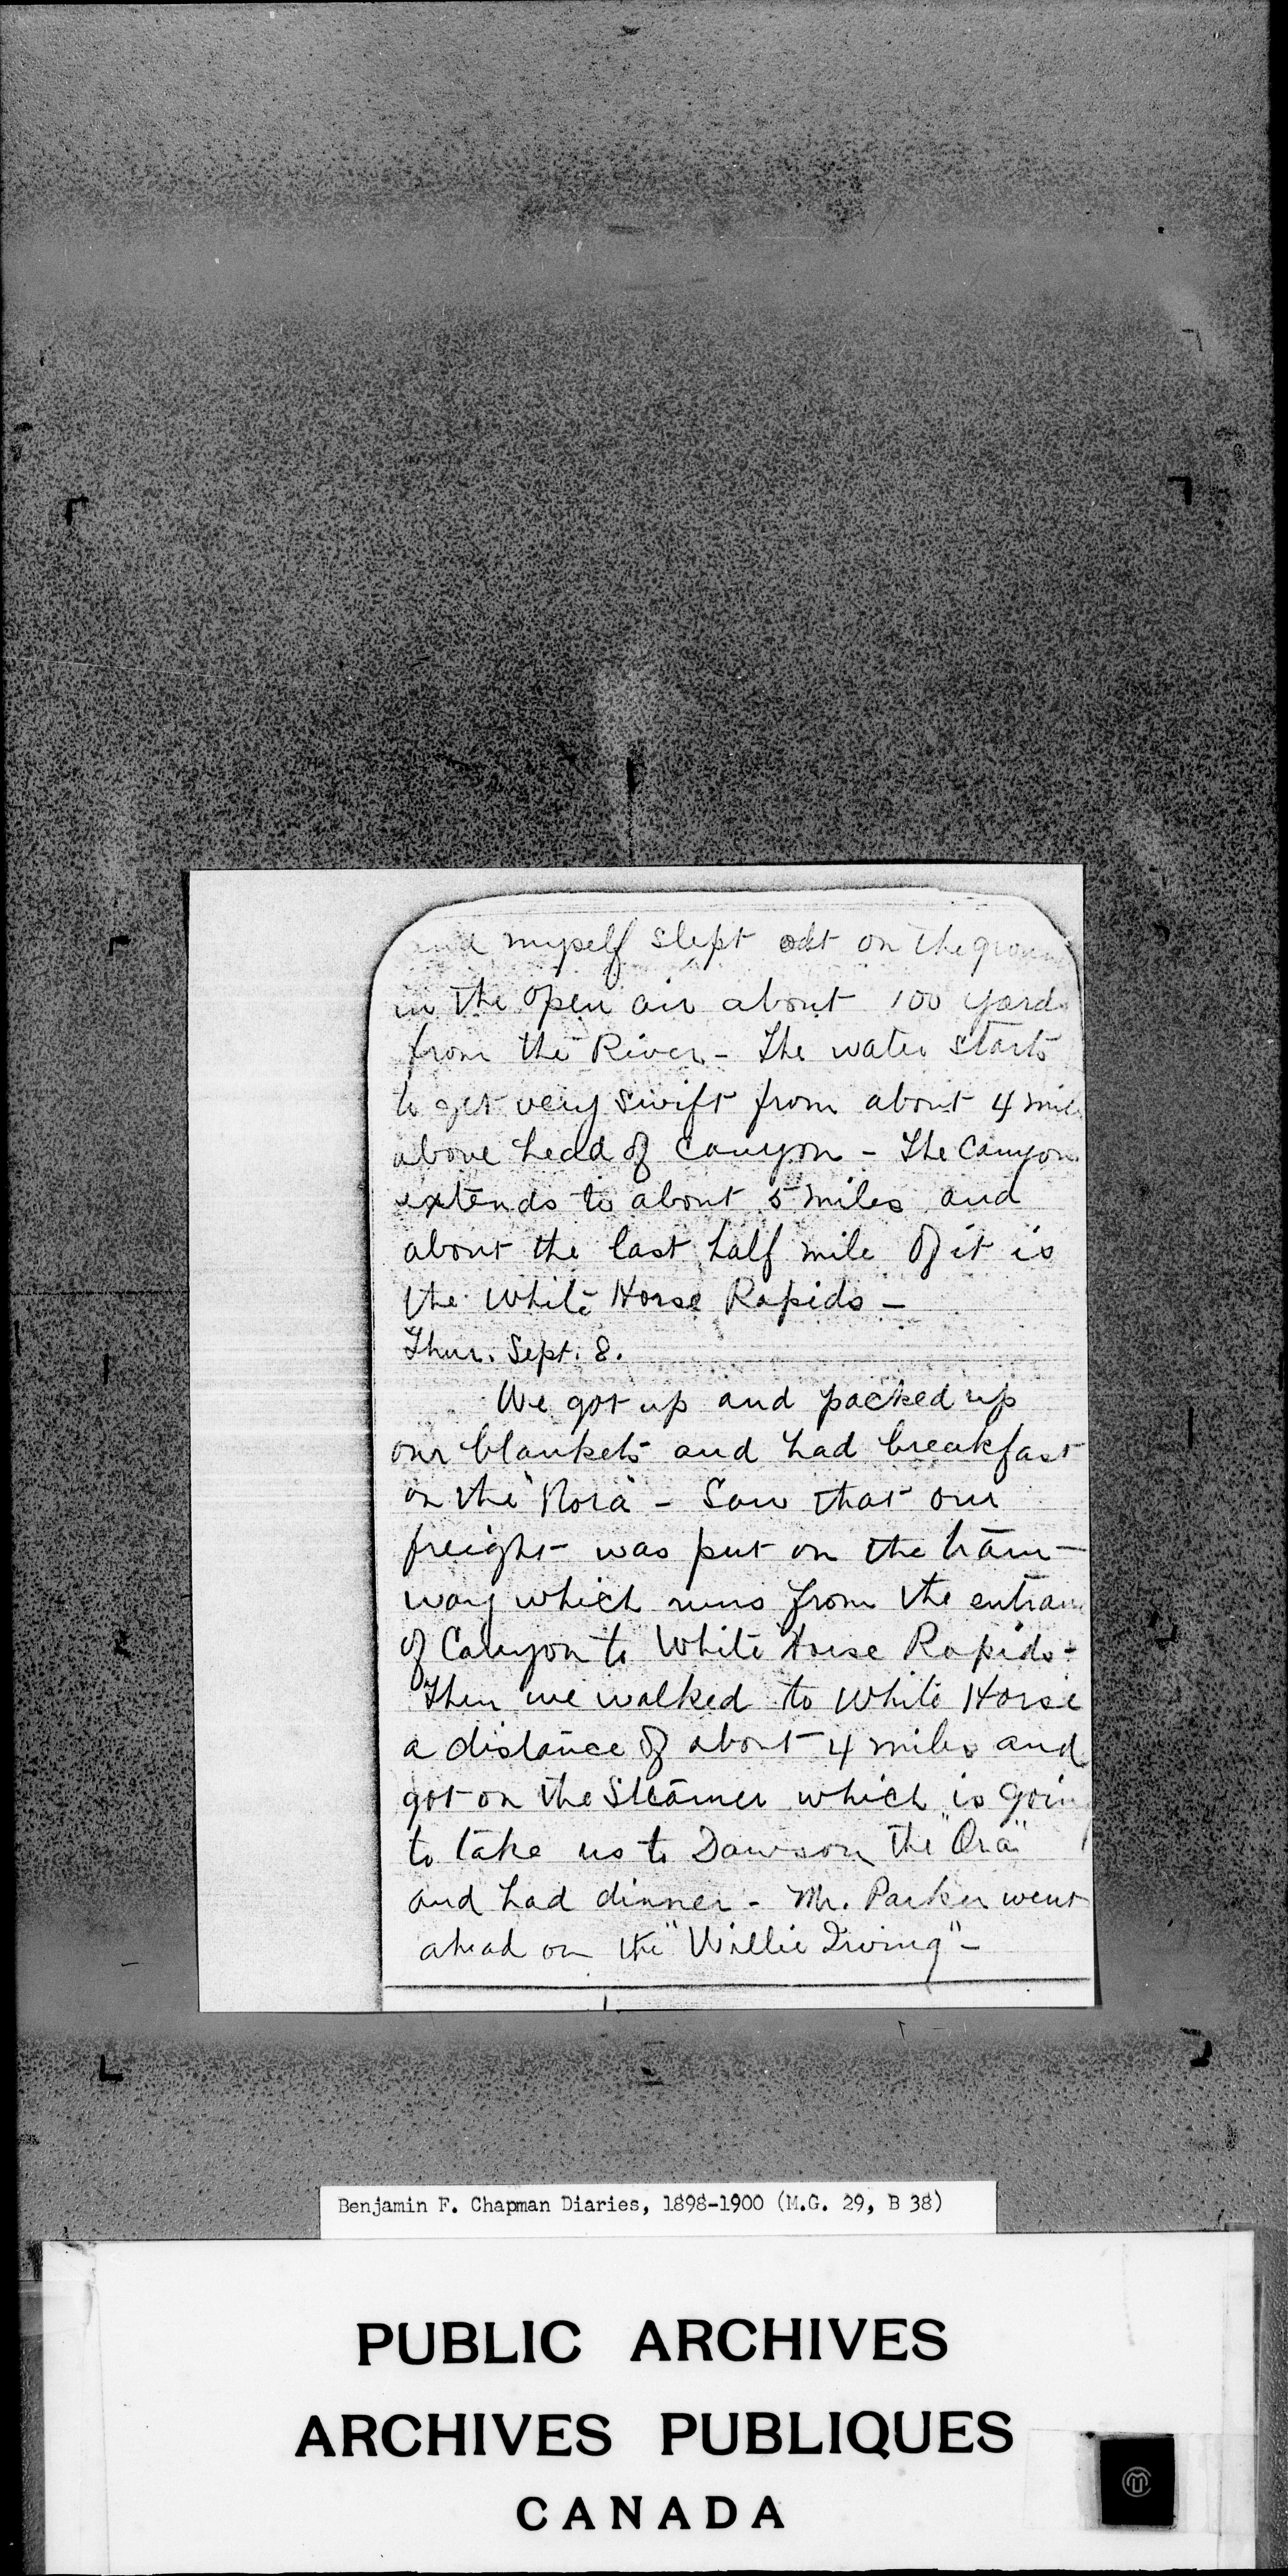 and myself slept out on the groun
in the open air about 100 yards
from the River - The water starts
to get very swift from about 4 mile
above head of Canyon - The Canyon
extends to about 5 miles and
about the last half mile of it is
the White Horse Rapids -
Thur. Sept. 8.
We got up and packed up
our blankets and had breakfast
on the "Nora" - Saw that our
freight was put on the tram-
way which runs from the entran
of Canyon to White Horse Rapids -
Then we walked to White Horse
a distance of about 4 miles and
got on the Steamer which is going
to take us to Dawson the "Ora"
and had dinner - Mr. Parker went
ahead on the "Willie Irving" -
Benjamin F. Chapman Diaries, 1898-1900 (M.G. 29, B 38)
PUBLIC ARCHIVES
ARCHIVES PUBLIQUES
CANADA